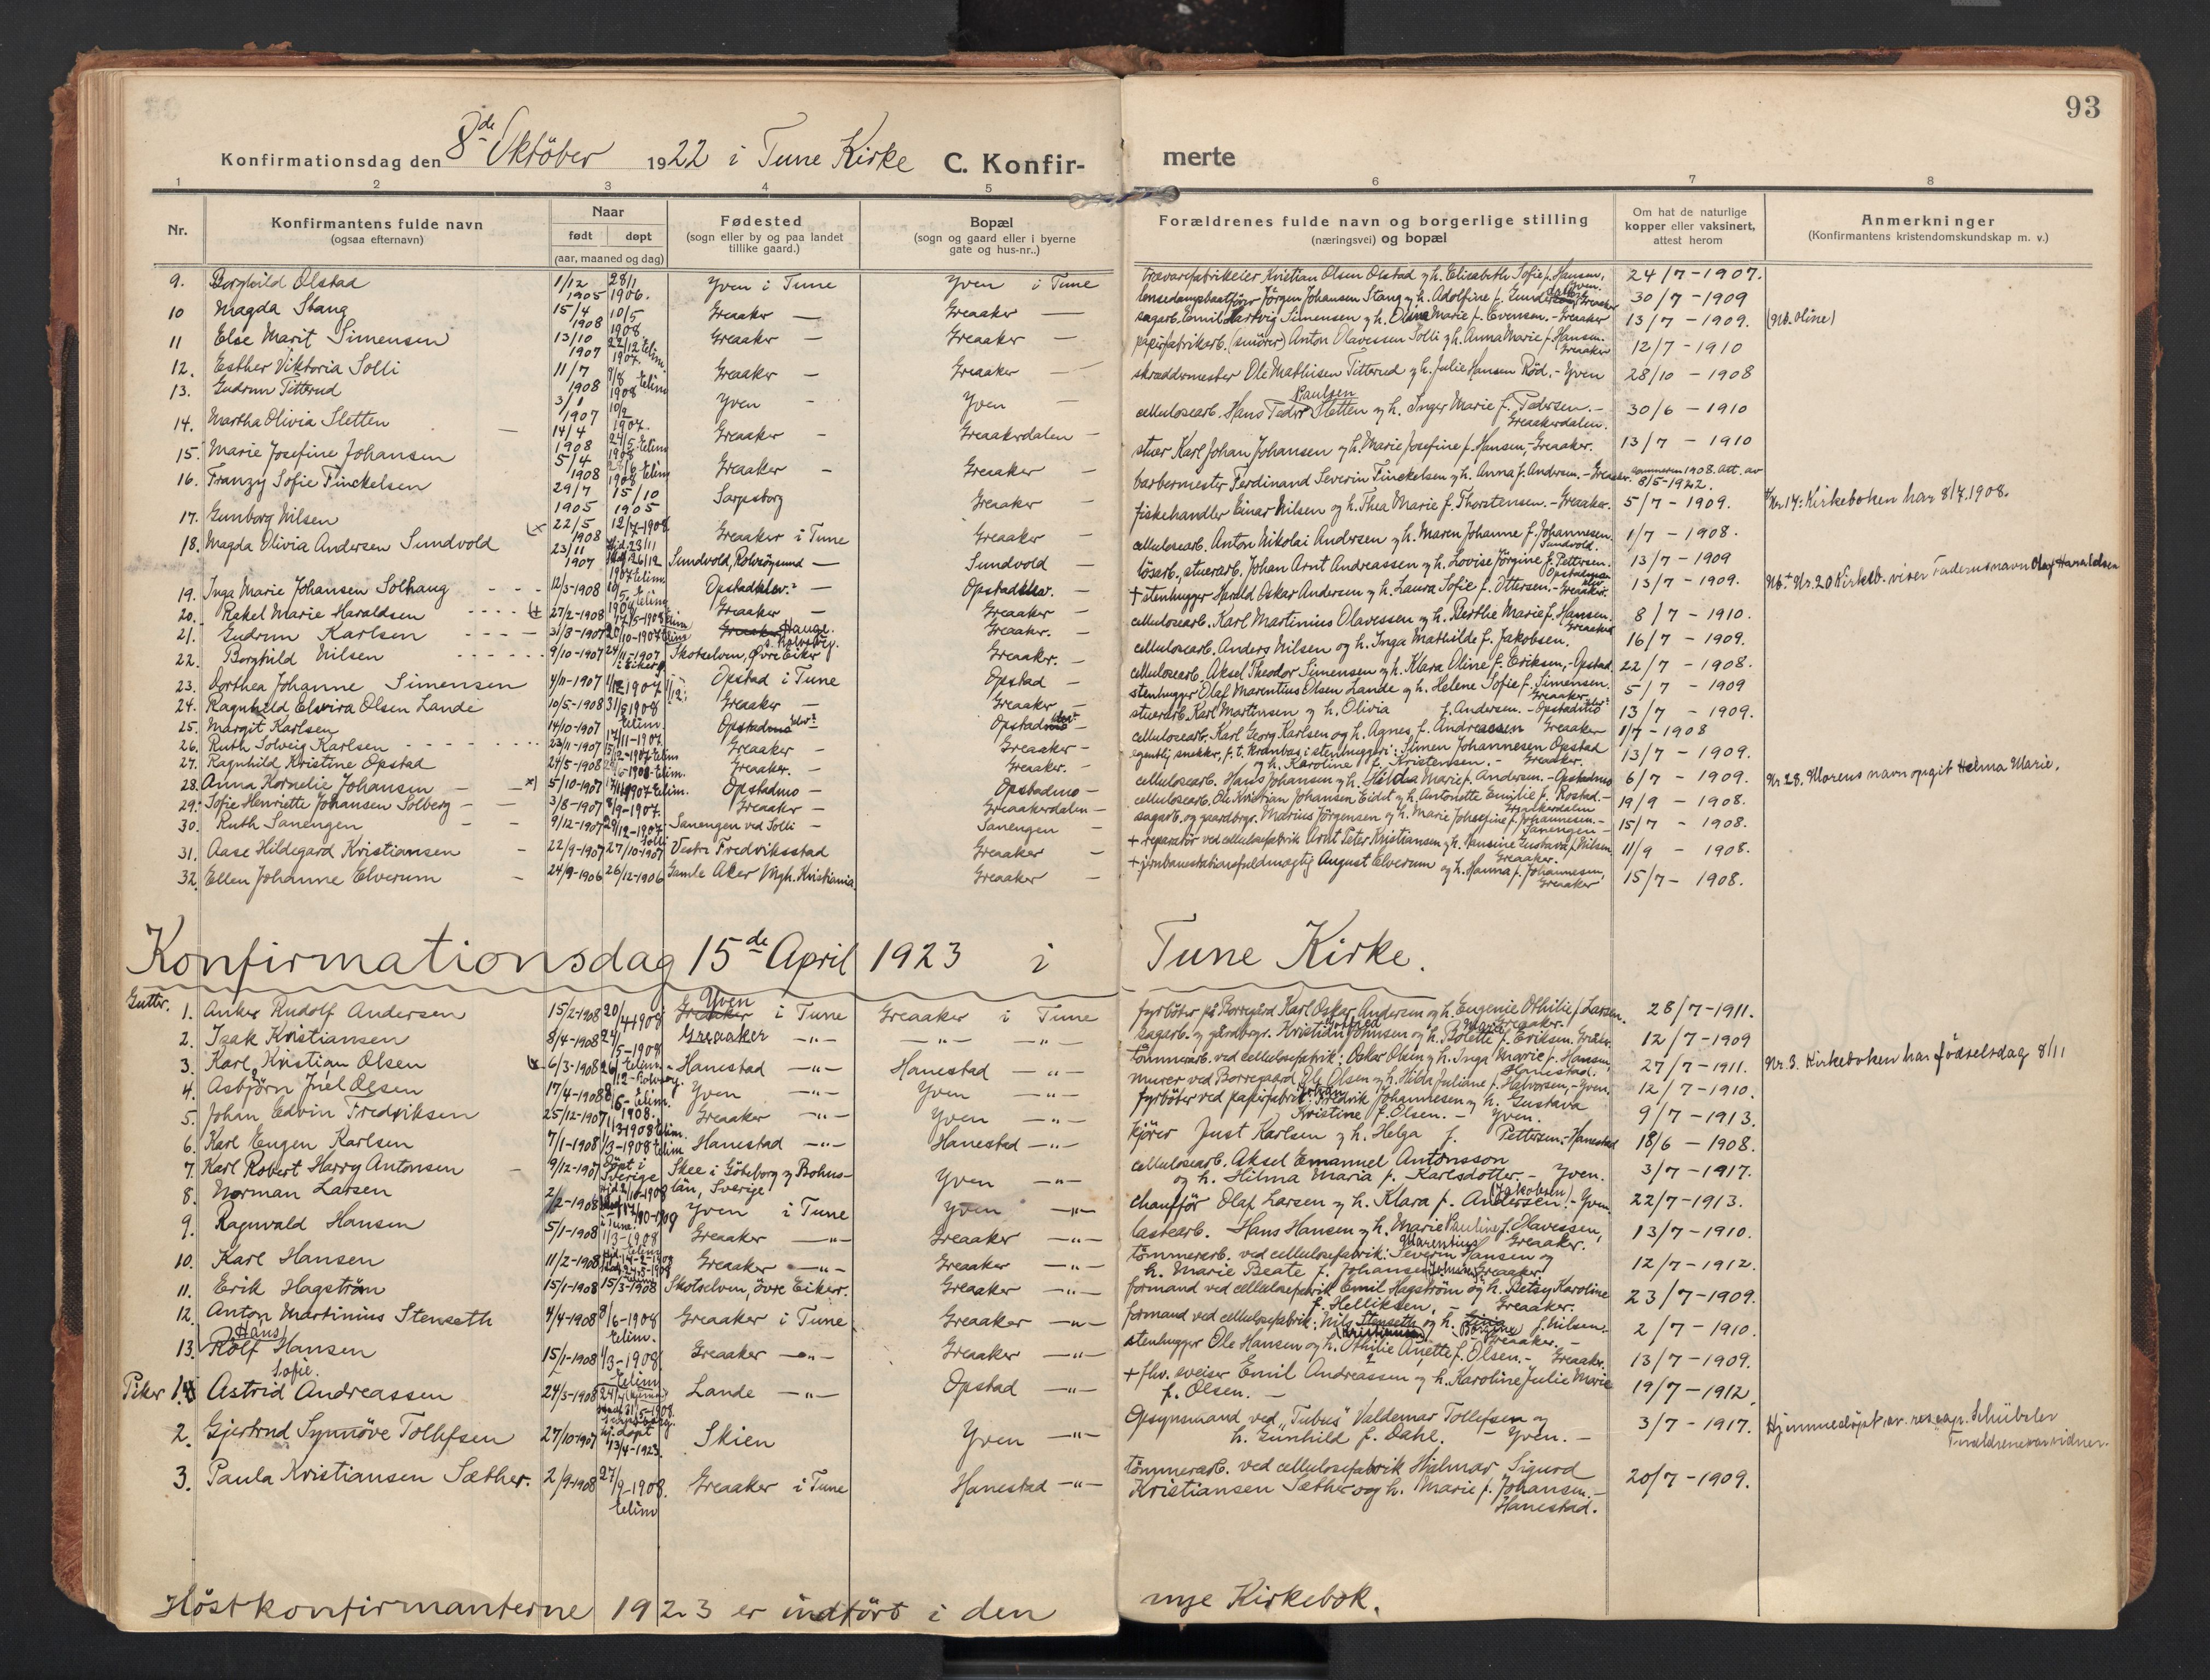 93
Konfirmationsdag den 8de Oktober 1922 i Tune Kirke C. Konfir-
merte
1 2 3 4 5 6 7 8
Nr. Konfirmantens fulde navn (ogsaa efternavn) Naar født døpt (aar, maaned og dag) Fødested (sogn eller by og paa landet tillike gaard.) Bopæl (sogn og gaard eller i byerne gate og hus-nr..) Forældrenes fulde navn og borgerlige stilling (næringsvei) og bopæl Om hat de naturlige kopper eller vaksinert, attest herom Anmerkninger (Konfirmantens kristendomskundskap m. v.)
9. Borghild Olstad 1/12 1905 28/1 1906. Yven i Tune Yven i Tune trævarefabrikeier Kristian Olsen Olstad og h. Elisabeth Sofie f. Hansen, Yven. 24/7-1907.
10 Magda Stang 15/4 1908 10/5 1908 Greaaker — Greaaker — Jörgen Johansen Stang og h. Adolfine f. Greaaker 30/7-1909
11 Else Marit Simensen 13/10 1907 22/12 Elim 1907. Greaaker — Greaaker — sagarb. Emil Hartvig Simensen og h. Olina Marie f. Evensen. - Greaaker 13/7-1909. (NB. Oline)
12. Esther Viktoria Solli 11/7 1908 9/8 Elim 1908 Greaaker — Greaaker — papirfabrikarb. (smörer) Anton Olavessen Solli og h. Anna Marie f. Hansen. Greaaker 12/7-1910
13. Gudrun Titterud 3/1 1907 10/2 1907. Yven — Yven — skræddermester Ole Mathisen Titterud og h. Julie Hansen Röd. - Yven 28/10-1908
14. Martha Olivia Sletten — 14/4 1908 24/5 Elim 1908 Greaaker — Greaakerdalen — cellulosearb. Hans Peder Paulsen Sletten og h. Inger Marie f. Pedersen. - Greaakerdalen. 30/6-1910
15. Marie Josefine Johansen 5/4 1908 Elim 1908 Greaaker — Greaaker — stuer Karl Johan Johansen og h. Marie Josefine f. Hansen, - Greaaker. 13/7-1910
16. Franzy Sofie Finckelsen 29/7 1905 15/10 1905 Sarpsborg Greaaker — barbermester Ferdinand Severin Finckelsen og h. Anna f. Andersen. - Greaaker. sommeren 1908. att. av 8/5-1922.
17. Gunborg Nilsen 22/5 1908 12/7-1908 Greaaker i Tune Greaaker — fiskehandler Einar Nilsen og h. Thea Marie f. Thorstensen. - Greaaker. 5/7-1909. Nr. 17: Kirkeboken har 8/7.1908.
18. Magda Olivia Andersen Sundvold 23/11 1907 26/12 1907 Elim Sundvold, Rolvsöysund — Sundvold — cellulosearb. Anton Nikolai Andersen og h. Maren Johanne f. Johannesen. Sundvold. 1/7-1908.
19. Inga Marie Johansen Solhaug - - 12/3-1908 Opstadelev. — Opstadelev. — lösarb., stuerarb. Johan Arnt Andreassen og h. Lovise Jörgine f. Pettersen. 13/7-1909
20. Rakel Marie Haraldsen - - - - 27/2-1908 17/5-1908 Elim Greaaker — Greaaker — + stenhugger Harald Oskar Andersen og h. Laura Sofie f. Ottersen. - Greaaker. 13/7-1909. NB + Nr. 20 Kirkeb. viser Faderens navn Olaf Haraldsen
21. Gudrun Karlsen - - - 31/8-1907 20/10-1907 Elim Greaaker Hauge. Greaaker. — cellulosearb. Karl Martinius Olavessen og h. Berthe Marie f. Hansen. Greaaker 8/7-1910.
22. Borghild Nilsen - - - - - 9/10-1907 24/11-1907 i Eiker Skotselven, Övre Eiker Greaaker. — cellulosearb. Anders Nilsen og h. Inga Mathilde f. Jakobsen. 16/7-1909.
23. Dorthea Johanne Simensen 4/11-1907 Opstad i Tune Opstad — cellulosearb. Aksel Theodor Simensen og h. Klara Oline f. Eriksen, - Opstad 22/7-1908.
24. Ragnhild Elvira Olsen Lande 10/5-1908 31/5 1908 Elim Greaaker — Greaaker — stenhugger Olaf Marentius Olsen Lande og h. Helene Sofie f. Simensen. Greaaker. 5/7-1909
25. Margit Karlsen 14/10-1907 17/11-1907 Opstadmo — Opstadmo — stuerarb. Karl Martinsen og h. Olivia f. Andersen. - Opstadmo 13/7-1909.
26. Ruth Solveig Karlsen - - - - - 23/11-1907 15/12-1907 Elim Greaaker — Greaaker — cellulosearb. Karl Georg Karlsen og h. Agnes f. Andreassen Greaaker 1/7-1908
27. Ragnhild Kristine Opstad 24/5-1908 1908-Elim. Greaaker. — Greaaker. — egentlig snekker, f. t. i stenhuggeri: Simen Johannesen Opstad og h. Karoline f. Kristensen. - Greaaker. 13/7-1909.
28. Anna Kornelie Johansen — x) 5/10-1907 17/11 1907 Elim. Opstadmo — Opstadmo — cellulosearb. Hans Johansen og h. Hilda Marie f. Andersen. - Opstadmo 6/7-1909. Nr. 28. Morens navn opgit Helma Marie.
29. Sofie Henriette Johansen Solberg — 3/8-1907 8/9-1907. Greaaker — Greaakerdalen — cellulosearb. Ole Kristian Johansen Eidet og h. Antonette Emilie f. Rostad. - Greaakerdalen 19/9-1908.
30. Ruth Sanengen — 9/12-1907 29/12-1907 Solli Sanengen ved Solli — Sanengen — sagarb. og gaardbrgr. Marius Jörgensen og h. Marie Josefine f. Johannesen. - Sanengen 15/7-1908.
31. Aase Hildegard Kristiansen — 22/9-1907 27/10-1907 Vestre Fredriksstad Greaaker — + reparatör ved cellulosefabrik Arnt Peter Kristiansen og h. Pausine Gustava f. Nilsen Greaaker. 11/9-1908.
32. Ellen Johanne Elverum — 24/9-1906 26/12-1906 Gamle Aker Mgh. Kristiania Greaaker — + jernbanestationsfuldmægtig August Elverum og h. Hanna f. Johannesen, Greaaker 15/7-1908.
Konfirmationsdag 15de April 1923 i Tune Kirke.
Gutter. 1. Anker Rudolf Andersen 15/2-1908 20/4 1908 Greaaker Yven i Tune Greaaker i Tune fyrböter på Borregård Karl Oskar Andersen og h. Eugenie Othilie f. Larsen. Greaaker. 28/7-1911.
2. Isak Kristiansen 8/4-1908 24/5-1908 Greaaker —"— —"— —"— sagarb. og gårdbrgr. Kristian Johnsen og h. Bolette Marie f. Eriksen. 12/7-1909
3. Karl Kristian Olsen x 6/3-1908 26/ Elim Hanestad —"— Hanestad —"— tömmerarb. ved cellulosefabrik: Oskar Olsen og h. Inga Marie f. Hansen, Hanestad. 27/7-1911. Nr. 3. Kirkeboken har födselsdag 8/11
4. Asbjörn Juel Olsen 17/4-1908 8/6-Elim. 1908. Yven —"— Yven —"— murer ved Borregaard Ole Olsen og h. Hilda Juliane f. Halvorsen, - Yven. 12/7-1910.
5. Johan Edvin Fredriksen 25/12-1907 1/3 1908 Elim. Greaaker —"— Yven —"— fyrböter ved papirfabrik: Johan Fredrik Johannesen og h. Gustava Kristine f. Olsen. - Yven. 9/7-1913.
6. Karl Eugen Karlsen 7/1-1908 1/3-1908 Elim Hanestad —"— Hanestad —"— kjörer Just Karlsen og h. Helga f. Pettersen. - Hanestad 18/6-1908.
7. Karl Robert Harry Antonsen — 9/12-1907 Döpt i Sverige Skee i Göteborg og Bohus-län, Sverige Yven —"— cellulosearb. Aksel Emanuel Antonsson og h. Hilma Maria f. Karlsdotter. - Yven. 3/7-1917.
8. Norman Larsen 2/2-1908 Yven i Tune Yven —"— chaufför Olaf Larsen og h. Klara f. Andersen (Jakobsen). - Yven. 22/7-1913.
9. Ragnvald Hansen 5/1-1908 1/3-1908 Greaaker —"— Greaaker —"— lastearb. Hans Hansen og h. Marie Pauline f. Olavessen, Greaaker. 13/7-1910.
10. Karl Hansen 11/2-1908 Greaaker —"— Greaaker —"— tömmerarb. ved cellulosefabrik: Severin Marentius Hansen og h. Marie Beate f. Johansen Greaaker 12/7-1912.
11. Erik Hagström 15/1-1908 15/3-1908 Skotselven, övre Eiker. Greaaker —"— formand ved cellulosefabrik Emil Hagström og h. Betsy Karoline f. Helliksen, - Greaaker. 23/7-1909.
12. Anton Martinius Stenseth 4/4-1908 8/6-1908 Elim. Greaaker i Tune Greaaker —"— formand ved cellulosefabrik: Nils Stenseth (Kristiansen) og h. f. Nilsen. Greaaker. - 2/7-1910.
13. Rolf Hans Hansen 15/1-1908 1/3-1908 Elim Greaaker —"— Greaaker —"— stenhugger Ole Hansen og h. Othilie Anette f. Olsen. - Greaaker. 13/7-1909.
Piker 1. Astrid Sofie. Andreassen 24/3-1908 31/5-1908. Lande —"— Opstad —"— + fhv. sveiser Emil Andreassen og h. Karoline Julie Marie f. Olsen. — 19/7-1912.
2. Gjertrud Synnöve Tollefsen 27/10-1907 hj. döpt 13/4-1923. Skien Yven —"— Opsynsmand ved "Tubus" Valdemar Tollefsen og h. Gunhild f. Dahl. - Yven. — 3/7-1917. Hjemmedöpt av res. cap. Schübeler Forældrene var vidner.
3. Paula Kristiansen Sæther. 2/9-1908 27/9-1908. Elim Greaaker i Tune Hanestad —"— tömmerarb. ved cellulosefabrik Hjalmar Sigurd Kristiansen Sæther og h. Marie f. Johansen. - Hanestad. 20/7-1909.
Höstkonfirmanterne 1923 er indfört i den nye Kirkebok.